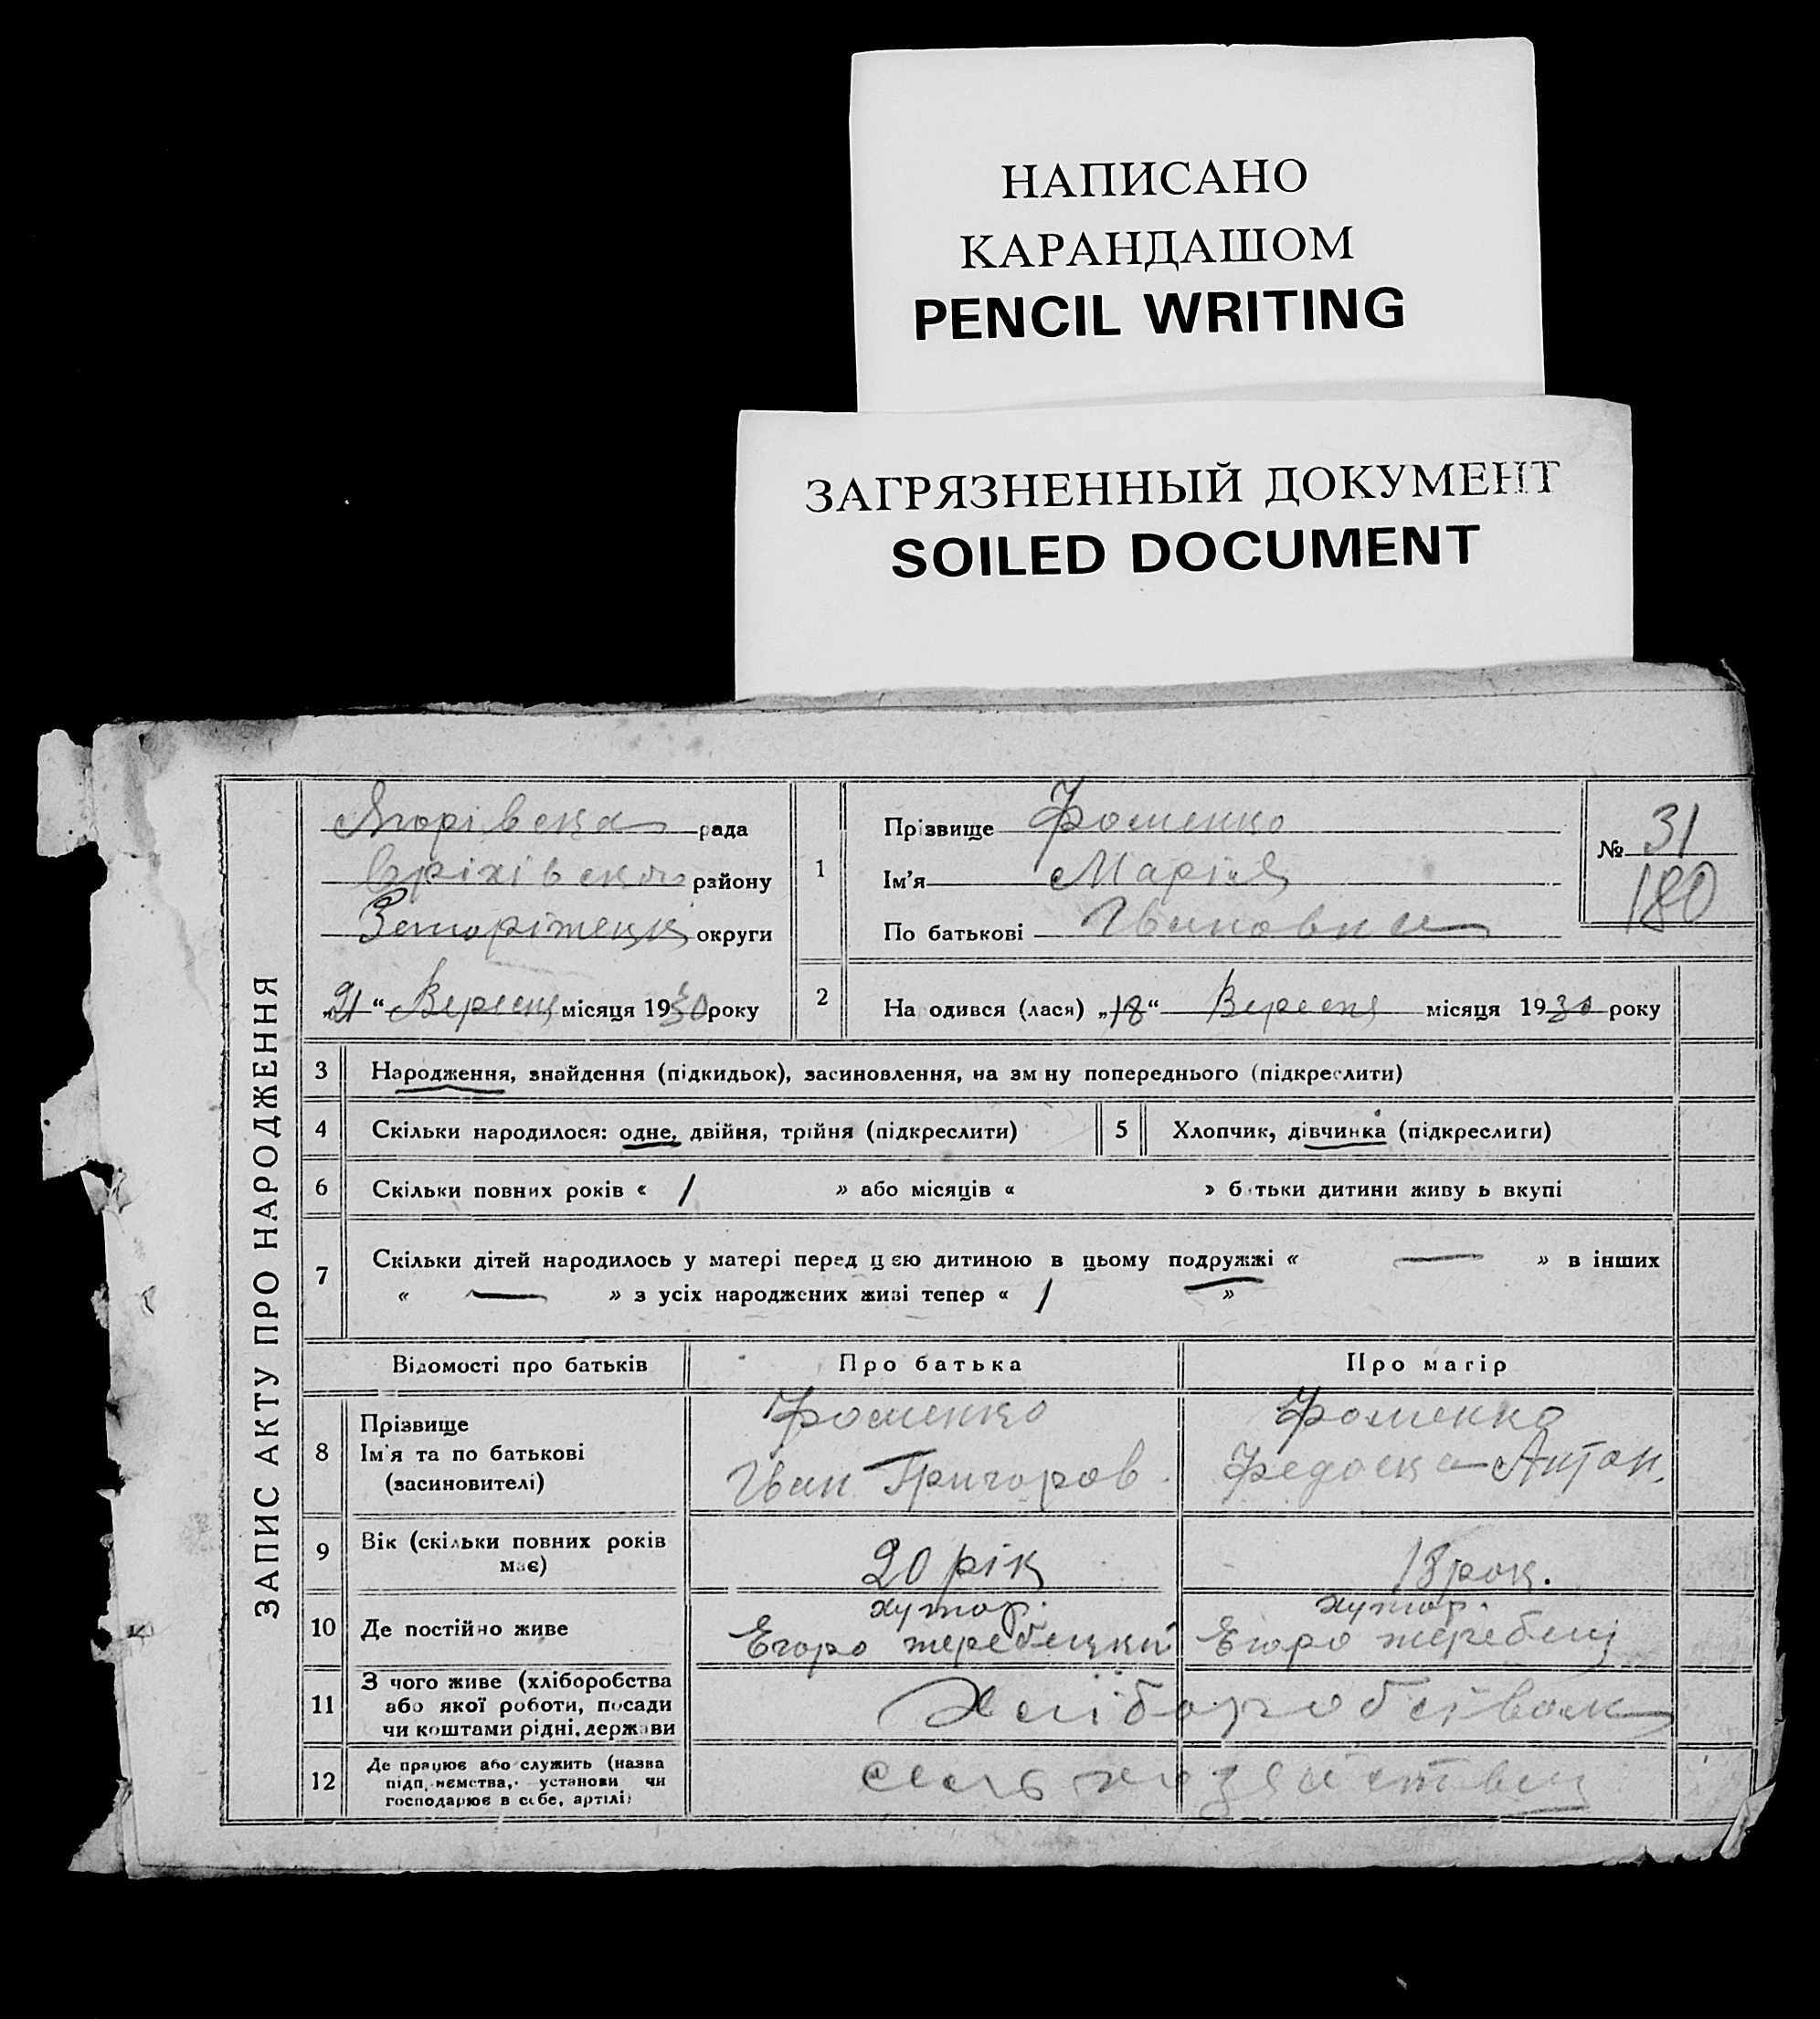 НАПИСАНО
КАРАНДАШОМ
PENCIL WRITING
ЗАГРЯЗНЕННЫЙ ДОКУМЕНТ
SOILED DOCUMENT
ЗАПИС АКТУ ПРО НАРОДЖЕННЯ
рада
Оріхівского району
округи
„21“ Вересня місяця 1930 року
1
Прізвище Фоменко
Ім'я Марія
По батькові Івановна
№ 31
180
2
Народився (лася) „18“ Вересня місяця 1930 року
3 Народження, знайдення (підкидьок), засиновлення, на зм ну попереднього (підкреслити)
4 Скільки народилося: одне, двійня, трійня (підкреслити)
5 Хлопчик, дівчинка (підкреслити)
6 Скільки повних років « / » або місяців « » б тьки дитини живу ь вкупі
7 Скільки дітей народилось у матері перед цєю дитиною в цьому подружжі « — » в інших
« — » з усіх народжених живі тепер « / »
Відомості про батьків Про батька Про матір
8 Прізвище
Ім'я та по батькові
(засиновителі)
Фоменко
Іван Григоров.
Фоменко
Федоска Антон.
9 Вік (скільки повних років
має)
20 рік
18 рок.
10 Де постійно живе
хутор.
Егоро жеребецкий
хутор.
Егоро жеребец
11 З чого живе (хліборобства
або якої роботи, посади
чи коштами рідні, держави
Хліборобством
12 Де працює або служить (назва
підп. ємства, установи чи
господарює в себе, артілі)